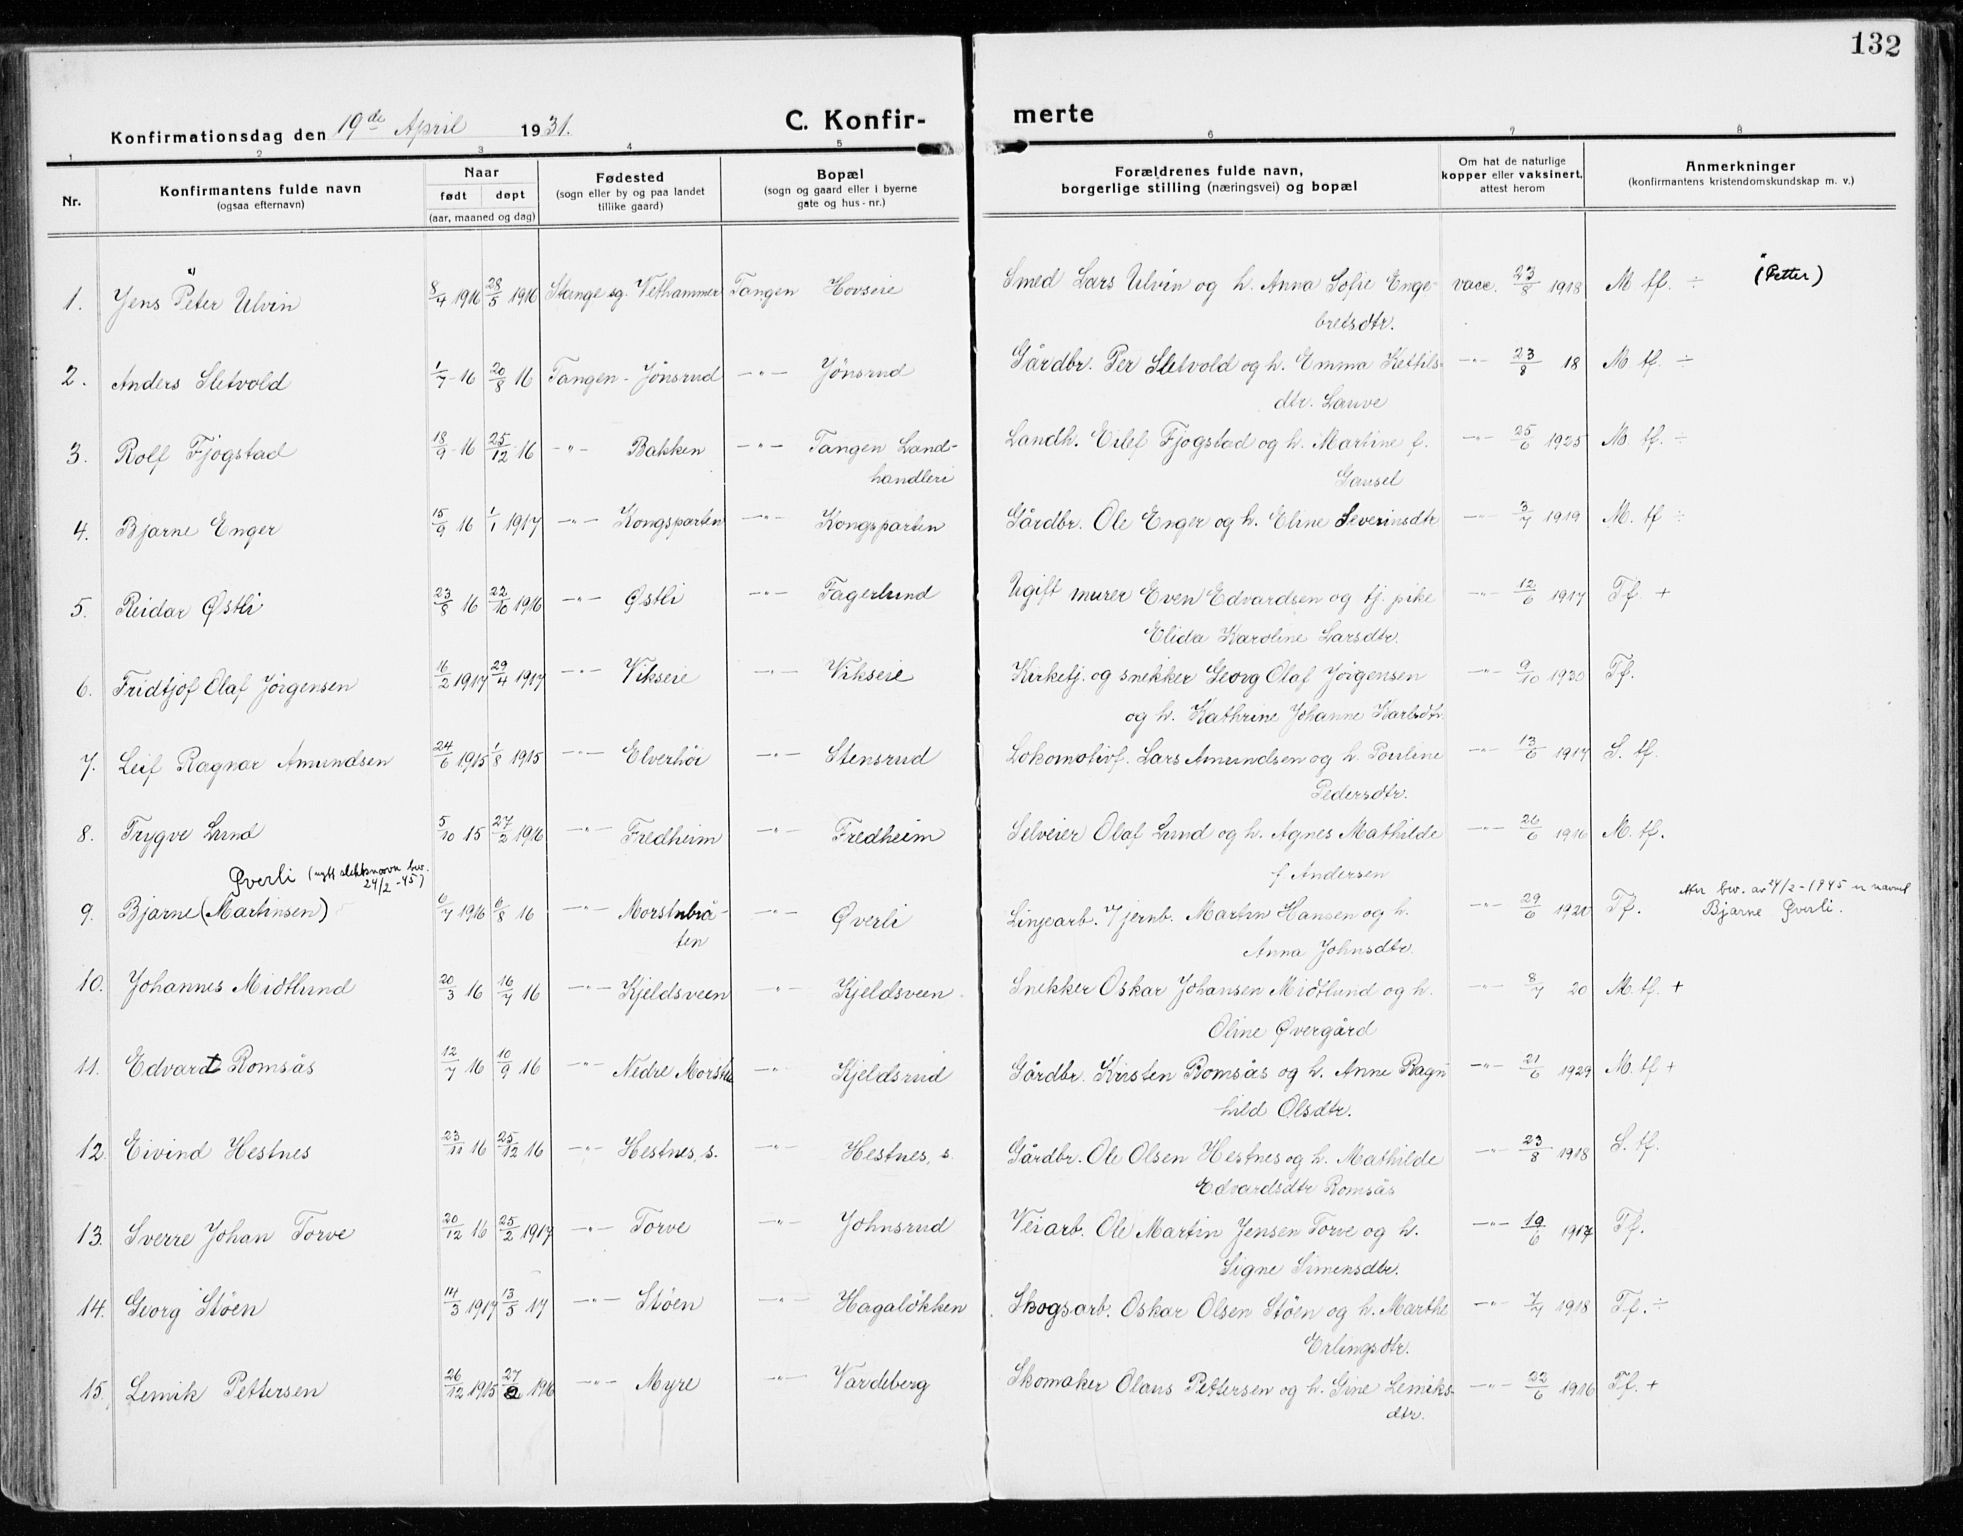 132
Konfirmationsdag den 19de April 1931.
C. Konfir-merte
1 2 3 4 5 6 7 8
Nr. Konfirmantens fulde navn (ogsaa efternavn) Naar født døpt (aar, maaned og dag) Fødested (sogn eller by og paa landet tillike gaard) Bopæl (sogn og gaard eller i byerne gate og hus-nr.) Forældrenes fulde navn, borgerlige stilling (næringsvei) og bopæl Om hat de naturlige kopper eller vaksinert, attest herom Anmerkninger (konfirmantens kristendomskundskap m. v.)
1. Jens Peter Ulvin 8/4 1916 28/5 1916 Stange sg. Vethammer Tangen Hovseie Smed Lars Ulvin og h. Anna Sofie Enge- vacc. 23/8 1918 M tf. ÷ (Petter)
bretsdtr.
2. Anders Sletvold 1/7 16 20/8 16 Tangen - Jönsrud —"— Jönsrud Gårdbr. Per Sletvold og h. Emma Kettils- —"— 23/8 18 M tf. ÷
dtr. Lauve
3. Rolf Fjogstad 18/9 16 25/12 16 —"— Bakken —"— Tangen Land- Landh. Eilef Fjogstad og h. Martine f. —"— 25/6 1925 M tf. ÷
handleri Gausel
4. Bjarne Enger 15/9 16 1/1 1917 —"— Kongsparten —"— Kongsparten Gårdbr. Ole Enger og h. Eline Severinsdtr —"— 3/7 1919 M. tf ÷
5. Reidar Østli 23/8 16 22/10 1916 —"— Østli —"— Fagerlund Ugift murer Even Edvardsen og tj. pike —"— 12/6 1917 Tf. +
Elida Karoline Larsdtr.
6. Fridtjof Olaf Jörgensen 16/2 1917 29/4 1917 —"— Vikseie —"— Vikseie Kirketj. og snekker Georg Olaf Jörgensen —"— 9/10 1930 Tf.
og h. Kathrine Johanne Karlsdtr.
7. Leif Ragnar Amundsen 24/6 1915 1/8 1915 —"— Elverhöi —"— Stensrud Lokomotivf. Lars Amundsen og h. Pouline —"— 13/6 1917 S. tf.
Pedersdtr.
8. Trygve Lund 5/10 15 27/2 1916 —"— Fredheim —"— Fredheim Selveier Olaf Lund og h. Agnes Mathilde —"— 26/6 1916 M. tf.
f Andersen
Øverli (nytt slektsnavn bev. 24/2-45)
9. Bjarne (Martinsen) 6/7 1916 6/8 16 —"— Morstubrå- —"— Øverli Linjearb. v. jernb. Martin Hansen og h. —"— 29/6 1920 Tf. bev. av 24/2-1945 er navnet
ten Anna Johnsdtr. Bjarne Øverli.
10. Johannes Midtlund 20/3 16 16/7 16 —"— Kjeldsveen —"— Kjeldsveen Snekker Oskar Johansen Midtlund og h. —"— 8/7 20 M. tf. +
Oline Øvergård
11. Edvart Romsås 12/7 16 10/9 16 —"— Nedre Morstu —"— Kjeldsrud Gårdbr. Kristen Romsås og h. Anne Ragn —"— 21/6 1929 M. tf +
hild Olsdtr.
12. Eivind Hestnes 23/11 16 25/12 16 —"— Hestnes, s. —"— Hestnes, s. Gårdbr. Ole Olsen Hestnes og h. Mathilde —"— 23/8 1918 S. tf.
Edvardsdtr Romsås
13. Sverre Johan Torve 20/12 16 25/2 1917 —"— Torve —"— Johnsrud Veiarb. Ole Martin Jensen Torve og h. —"— 19/6 1917 Tf.
Signe Simensdtr.
14. Georg Stöen 14/3 1917 13/5 17 —"— Stöen —"— Hagalökken Skogsarb. Oskar Olsen Stöen og h. Marthe —"— 7/7 1918 Tf. ÷
Erlingsdtr.
15. Lemik Pettersen 26/12 1915 27/2 1916 —"— Myre —"— Vardeberg Skomaker Olaus Pettersen og h. Gine Lemiks- —"— 22/6 1916 Tf. +
dtr.